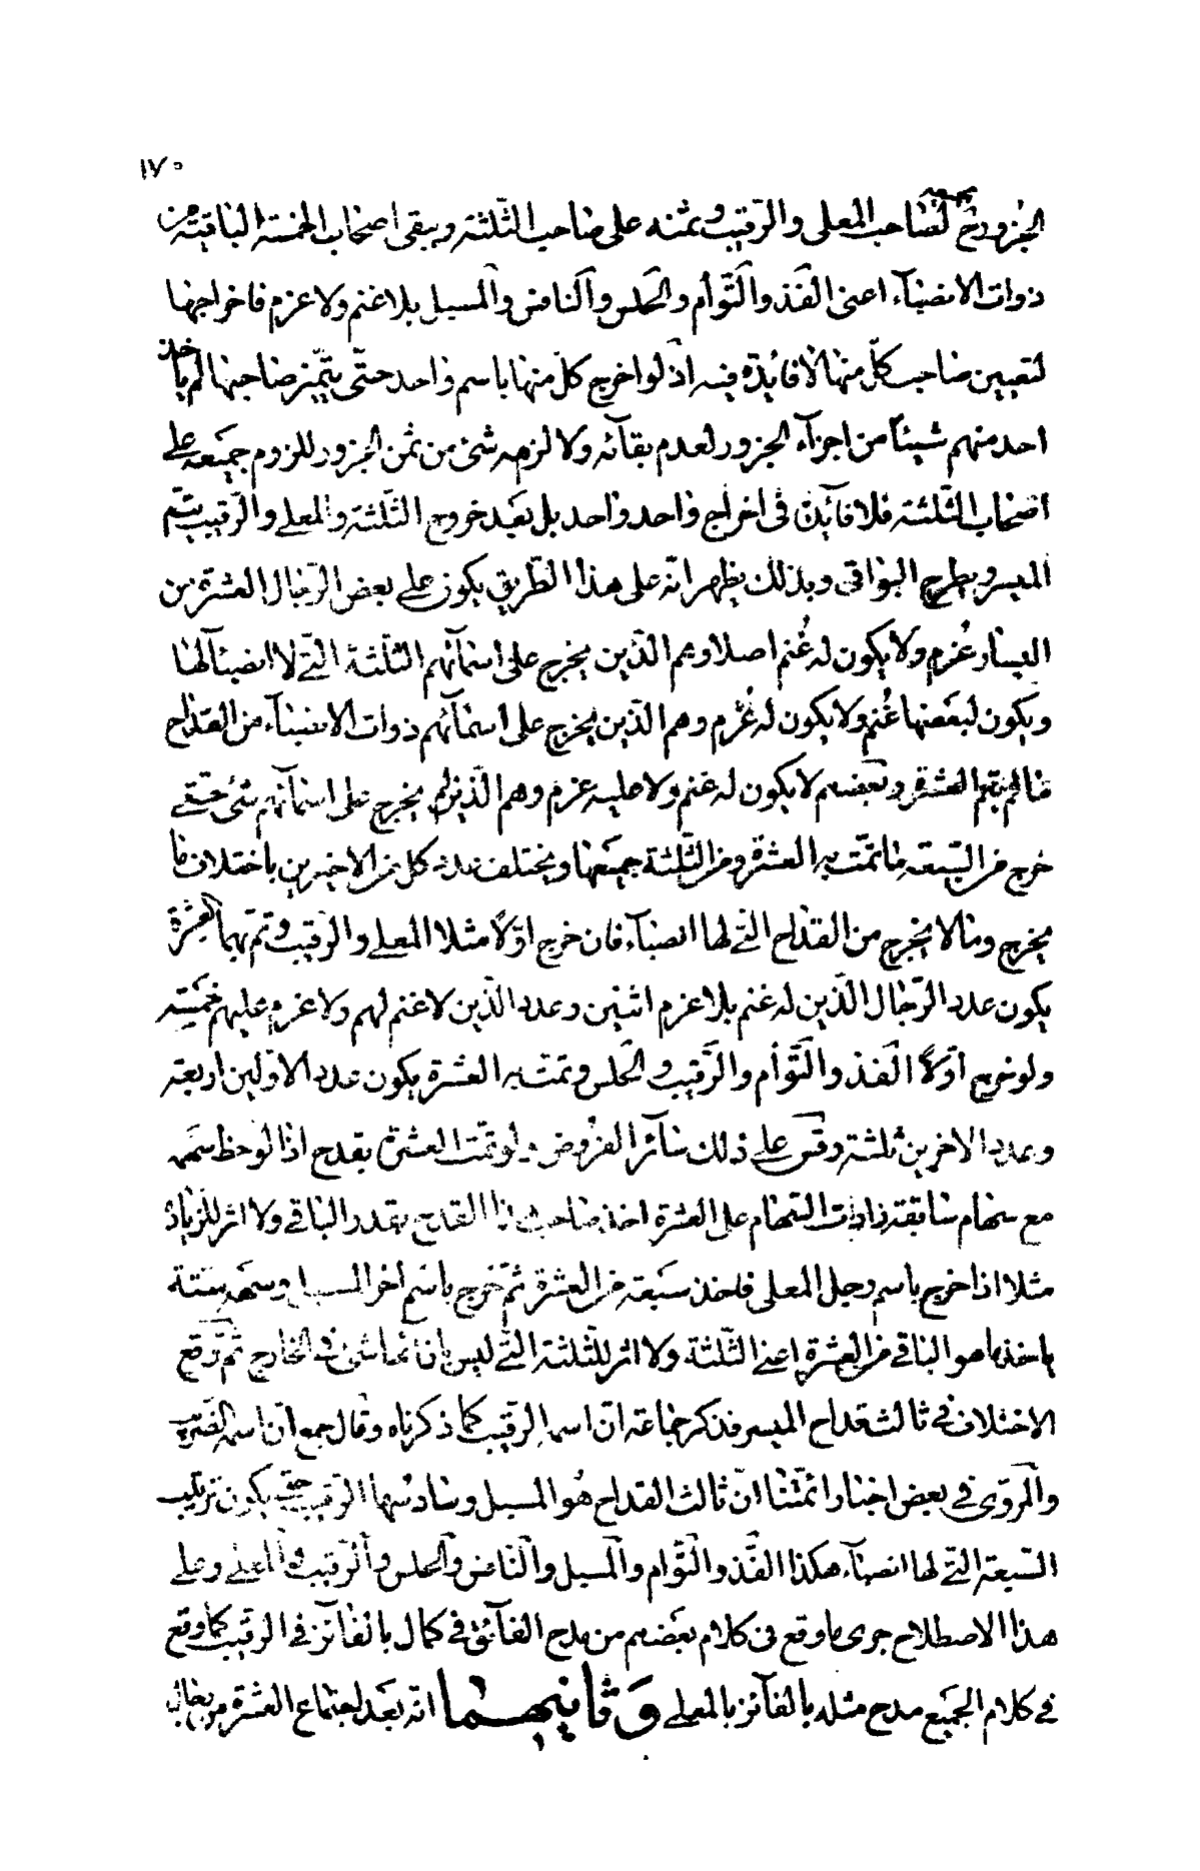 ١٧٠
الجزور ح لصاحب المعلى والرّقيب وثمنه على صاحب الثّلثة ويبقى اصحاب الخمسة الباقية من
ذوات الانصباء اعنى الفذ والتّوأم والحلس والنافس والمسبل بلا غنم ولا غرم فاخراجها
لتعيين صاحب كلّ منها لا فائدة فيه اذ لو اخرج كلّ منها باسم واحد حتّى يتميّز صاحبها لم ياخذ
احد منهم شيئاً من اجزاء الجزور لعدم بقائه ولا لزمه شئ من ثمن الجزور للزوم جميعه على
اصحاب الثّلثة فلا فائدة فى اخراج واحد واحد بل بعد خروج الثّلثة والمعلى والرّقيب يتم
الميسر ويطرح البواقى وبذلك يظهر انّه على هذا الطّريق يكون على بعض الرّجال العشرة من
اليسار غرم ولا يكون له غُنم اصلا وهم الذّين يخرج على اسمائهم الثّلثة التى لا انصباء لها
ويكون لبعضها غُنم ولا يكون له غُرم وهم الذّين يخرج على اسمائهم ذوات الانصباء من القداح
ما لم يتم العشرة وبعضهم لا يكون له غنم ولا عليه غرم وهم الّذين لم يخرج على اسمائهم شئ حتى
خرج من السّبعة ما تمّت به العشرة ومن الثّلثة جميعها ويختلف عدد كل من الاخيرين باختلاف ما
يخرج وما لا يخرج من القداح التى لها انصباء فان خرج اوّلاً مثلا المعلى والرقيب وتم بهما العشرة
يكون عدد الرّجال الّذين له غنم بلا غرم اثنين وعدد الّذين لا غنم لهم ولا غرم عليهم خمسة
ولو خرج اوّلاً الفذ والتّوأم والرّقيب والحلس وتمت به العشرة يكون عدد الاوّلين اربعة
وعدد الاخرين ثلثة وقس على ذلك سائر الفروض ولو تمّت العشرة بقدح اذا لوحظ سهمه
مع سهام سابقة زادت السّهام على العشرة اخذ صاحب هذا القدح بقدر الباقى ولا اثر للزيادة
مثلا اذا خرج باسم رجل المعلى فاخذ سبعة من العشرة ثمّ خرج باسم اخر المسبل وسهمه ستّة
ياخذ ما هو الباقى من العشرة اعنى الثّلثة ولا اثر للثلثة التّى ليس بازائها شئ فى الخارج ثمّ وقع
الاختلاف فى ثالث قداح الميسر فذكر جماعة انّ اسمه الرّقيب كما ذكرناه وقال جمع انّ اسمه الضّريب
والمروى فى بعض اخبار ائمّتنا انّ ثالث القداح هُو المسبل وسادسُها الرّقيب حتى يكون ترتيب
السّبعة التّى لها انصباء هكذا الفّذ والتّوام والمسبل والنّافس والحلس والرّقيب والمعلى وعلى
هذا الاصطلاح جرى ما وقع فى كلام بعضهم من مدح الفائق فى كمال بالفائز فى الرقيب كما وقع
فى كلام الجميع مدح مثله بالفائز بالمعلى وثانيهما انّه بعد اجتماع العشرة من رجال